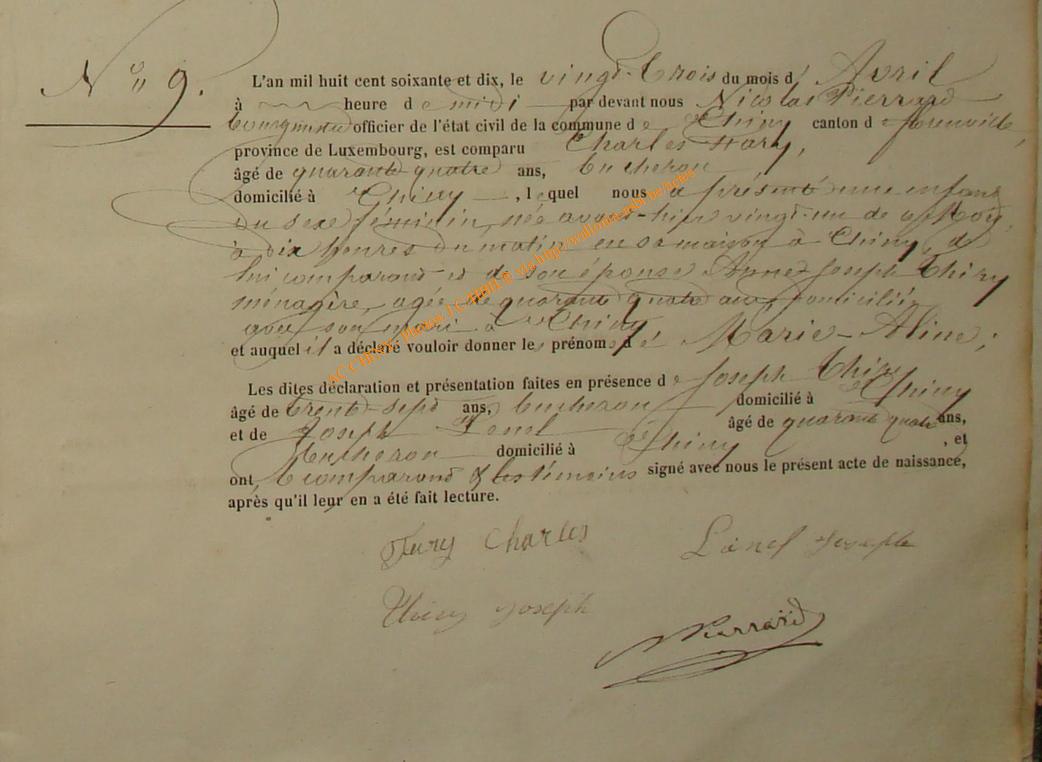 N° 9.
L'an mil huit cent soixante et dix, le vingt-trois du mois d' Avril
à heure de midi par devant nous Nicolas Pierrard
bourgmestre officier de l'état civil de la commune de Chiny canton de florenville,
province de Luxembourg, est comparu Charles
âgé de quarante quatre ans, bucheron
domicilié à Chiny, lequel nous a présenté une enfant
du sexe féminin, née avant-hier vingt-un de ce mois,
à dix heures du matin en sa maison à Chiny, de
lui comparant et de son épouse Anne Joseph Thiry
ménagère, agée de quarante quatre ans, domiciliée
avec son mari à Chiny,
et auquel il a déclaré vouloir donner les prénoms de Marie-Aline;
Les dites déclaration et présentation faites en présence de Joseph Thiry
âgé de trente-sept ans, bucheron domicilié à Chiny
et de Joseph âgé de quarante quatre ans,
bucheron domicilié à Chiny, et
ont le comparant & les témoins signé avec nous le présent acte de naissance,
après qu'il leur en a été fait lecture.
Charles
Joseph
Thiry Joseph
Pierrard